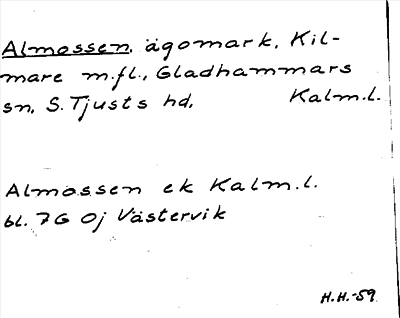 Almossen, ägomark, Kil-
mare m.fl., Gladhammars
sn, S. Tjusts hd, Kalm.l.
Almossen ek Kalm.l.
bl. 7G 0j Västervik
H.H.-59